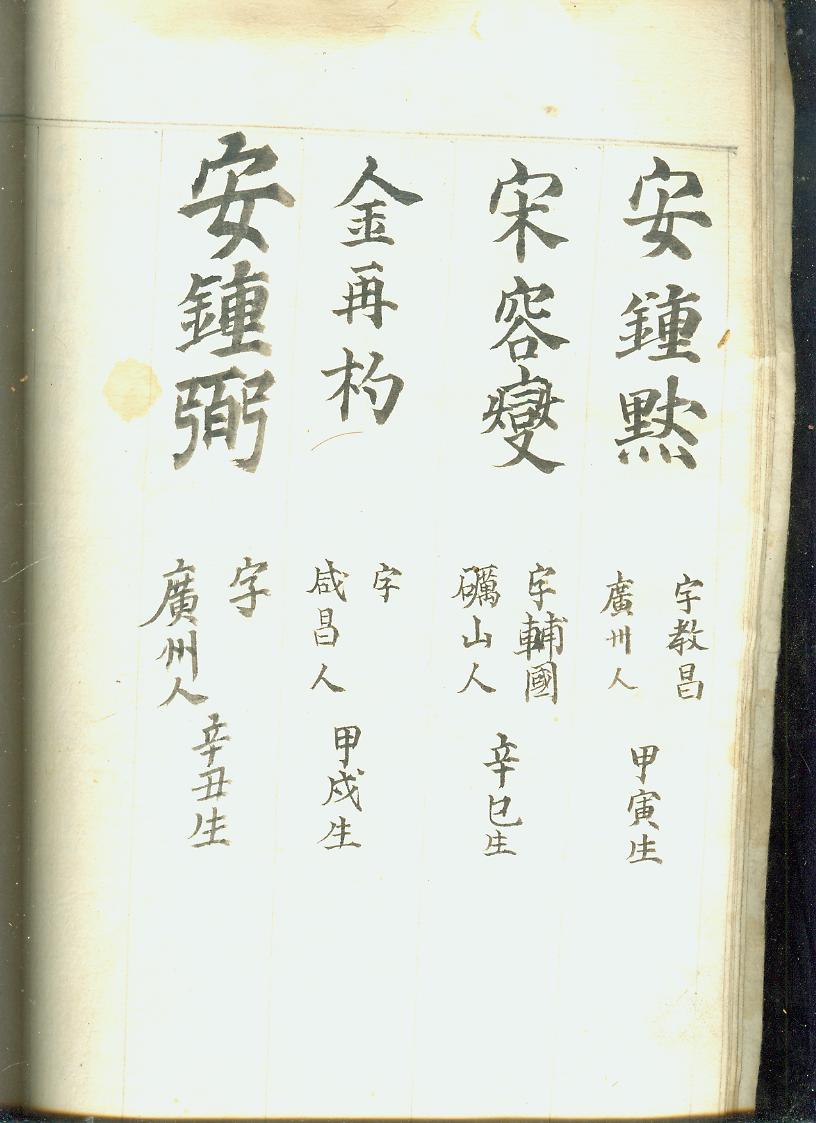 安鍾默
字教昌
廣州人
甲寅生
宋容燮
字輔國
礪山人
辛巳生
金再杓
字
咸昌人
甲戌生
安鍾弼
字
廣州人
辛丑生